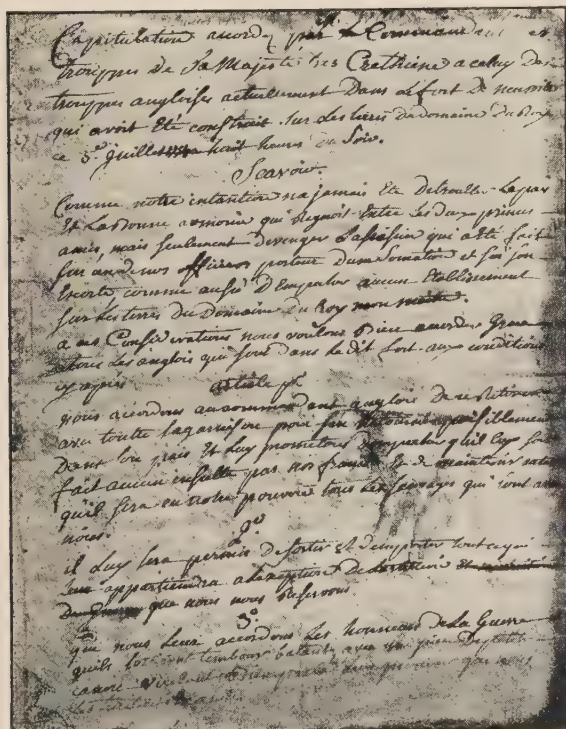 Capitulation accordez par le Commandant et
troupes de Sa Majesté tres Crethiene a celuy Des
trouppes angloises actuellement Dans Le fort de
qui avoit Eté construit sur Les terres du domaine du Roy
ce 3e juillet a huit heures du Soir.
Scavoir.
Comme notre intantion n'a jamais Eté de troubler La paix
Et La Bonne armonie qui Regnoit Entre Les deux princes
amis, mais seulement de venger L'assasin qui a été fait
sur un de nos officiers porteur D'une Somation et sur son
Escorte comme aussy D'Empecher aucun Etablissement
sur Les terres du Domaine du Roy mon maitre.
a ces Considerations nous voulons Bien accorder Grace
a tous Les anglois qui sont dans le dit fort aux conditions
cy apres
article 1er
nous accordons au commandant anglois De se retirer
avec toute La garnison pour s'en paisiblement
Dans son païs Et Luy promettons D'empecher qu'il Luy soit
fait aucun insulte par nos françois Et de maintenir autant
qu'il sera en notre pouvoir tous Les sauvages qui sont avec
nous.
2e
il Luy sera permis De sortir Et d'emporter tout ce qui
Leur appartiendra a L'exception De
que nous nous Reservons
3e
que nous Leur accordons Les honneurs de La Guerre
qu'ils sortiront tambour battant avec une piece De petit
canon